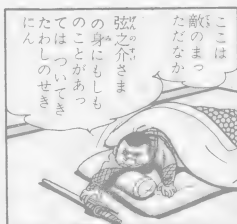 ここは
敵のまっ
ただなか
弦之介さま
の身にもしも
のことがあっ
ては ついてき
たわしのせき
にん